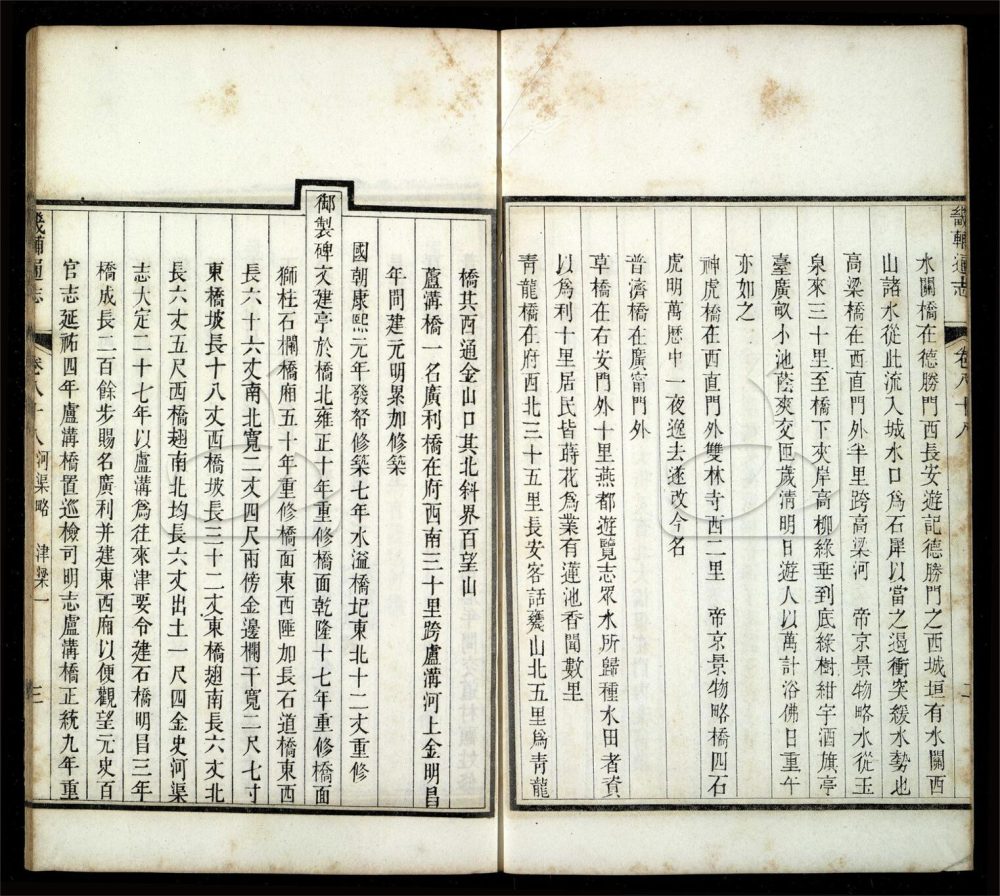 畿輔通志 卷八十八
水關橋在德勝門西長安遊記德勝門之西城垣有水關西
山諸水從此流入城水口爲石犀以當之遏衝突緩水勢也
高梁橋在西直門外半里跨高梁河 帝京景物略水從玉
泉來三十里至橋下夾岸高柳綠垂到底綠樹紺宇酒旗亭
臺廣畝小池蔭爽交匝歲清明日遊人以萬計浴佛日重午
亦如之
神虎橋在西直門外雙林寺西二里 帝京景物略橋四石
虎明萬歷中一夜逸去遂改今名
普濟橋在廣甯門外
草橋在右安門外十里燕都遊覽志眾水所歸種水田者資
以爲利十里居民皆蒔花爲業有蓮池香聞數里
青龍橋在府西北三十五里長安客話甕山北五里爲青龍
橋其西通金山口其北斜界百望山
蘆溝橋一名廣利橋在府西南三十里跨盧溝河上金明昌
年間建元明累加修築
國朝康熙元年發帑修築七年水溢橋圮東北十二丈重修
御製碑文建亭於橋北雍正十年重修橋面乾隆十七年重修橋面
獅柱石欄橋廂五十年重修橋面東西陲加長石道橋東西
長六十六丈南北寬二丈四尺兩傍金邊欄干寬二尺七寸
東橋坡長十八丈西橋坡長三十二丈東橋翅南長六丈北
長六丈五尺西橋翅南北均長六丈出土一尺四金史河渠
志大定二十七年以盧溝爲往來津要令建石橋明昌三年
橋成長二百餘步賜名廣利并建東西廂以便觀望元史百
官志延祐四年盧溝橋置巡檢司明志盧溝橋正統九年重
畿輔通志 卷八十八 河渠略 津梁一 三